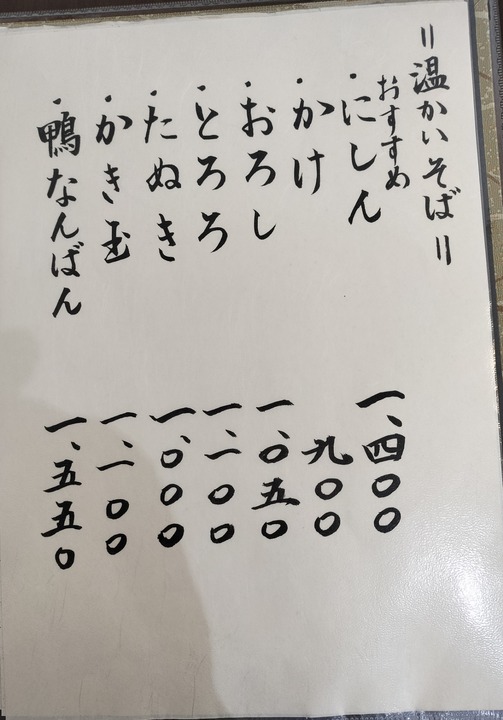 =温かいそば=
おすすめ
・にしん 一、四〇〇
・かけ 九〇〇
・おろし 一、〇五〇
・とろろ 一、一〇〇
・たぬき 一、〇〇〇
・かき玉 一、一〇〇
・鴨なんばん 一、五五〇